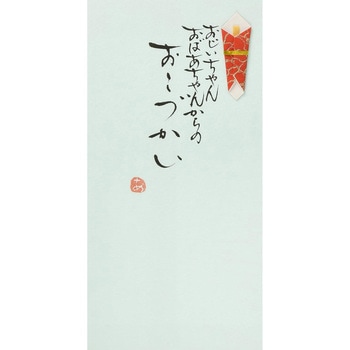 おじいちゃん
おばあちゃんからの
おこづかい